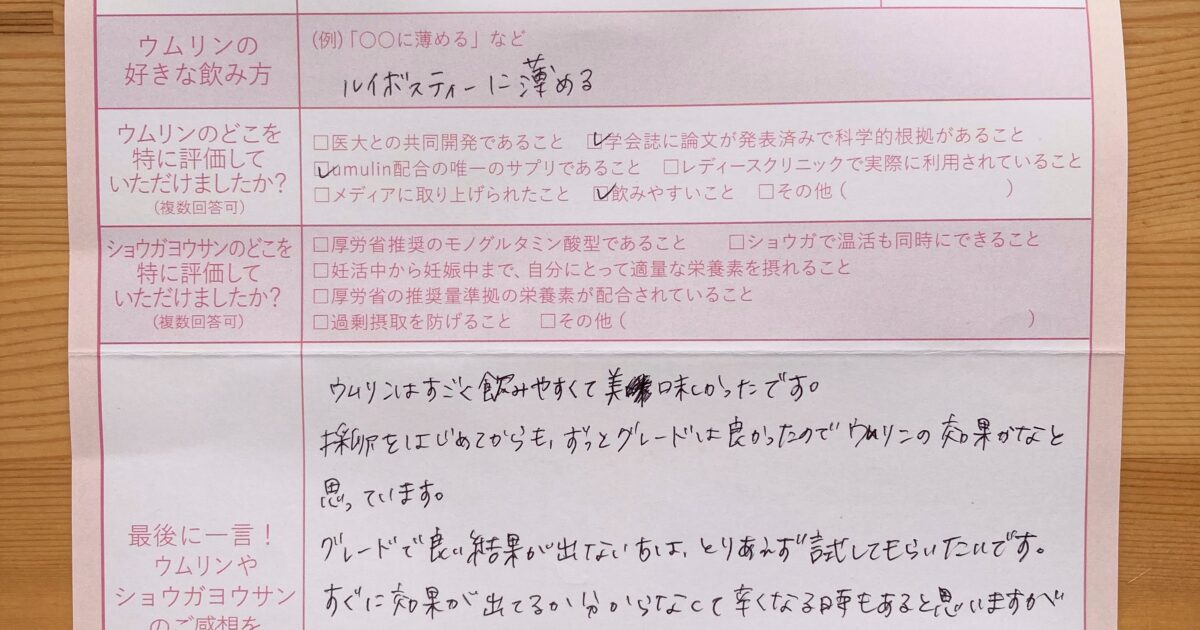 ウムリンの
好きな飲み方
(例)「〇〇に薄める」など
ルイボスティーに薄める
ウムリンのどこを
特に評価して
いただけましたか?
(複数回答可)
□医大との共同開発であること ☑学会誌に論文が発表済みで科学的根拠があること
☑umulin配合の唯一のサプリであること □レディースクリニックで実際に利用されていること
□メディアに取り上げられたこと ☑飲みやすいこと □その他( )
ショウガヨウサンのどこを
特に評価して
いただけましたか?
(複数回答可)
□厚労省推奨のモノグルタミン酸型であること □ショウガで温活も同時にできること
□妊活中から妊娠中まで、自分にとって適量な栄養素を摂れること
□厚労省の推奨量準拠の栄養素が配合されていること
□過剰摂取を防げること □その他( )
最後に一言!
ウムリンや
ショウガヨウサン
のご感想を
ウムリンはすごく飲みやすくて美味しかったです。
採卵をはじめてからも、ずっとグレードは良かったのでウムリンの効果かなと
思っています。
グレードで良い結果が出てない方は、とりあえず試してもらいたいです。
すぐに効果が出てるか分からなくて辛くなる時もあると思いますが